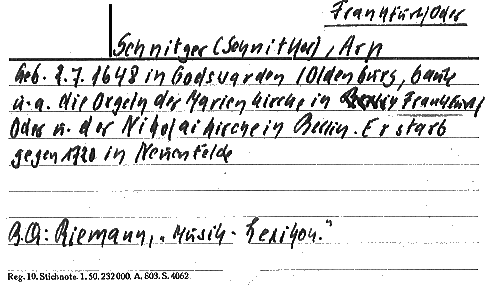 Frankfurt/Oder
Schnitger (Schnitker), Arp
Geb. 2.7.1648 in Godswarden (Oldenburg, baute
u.a. die Orgeln der Marienkirche in Frankfurt/
Oder u. der Nikolaikirche in Berlin. Er starb
gegen 1720 in Neuenfelde
B.Q.: Riemann, „Musik-Lexikon."
Reg. 19. Stichnote. 1. 50. 232000. A. 803. S. 4062.